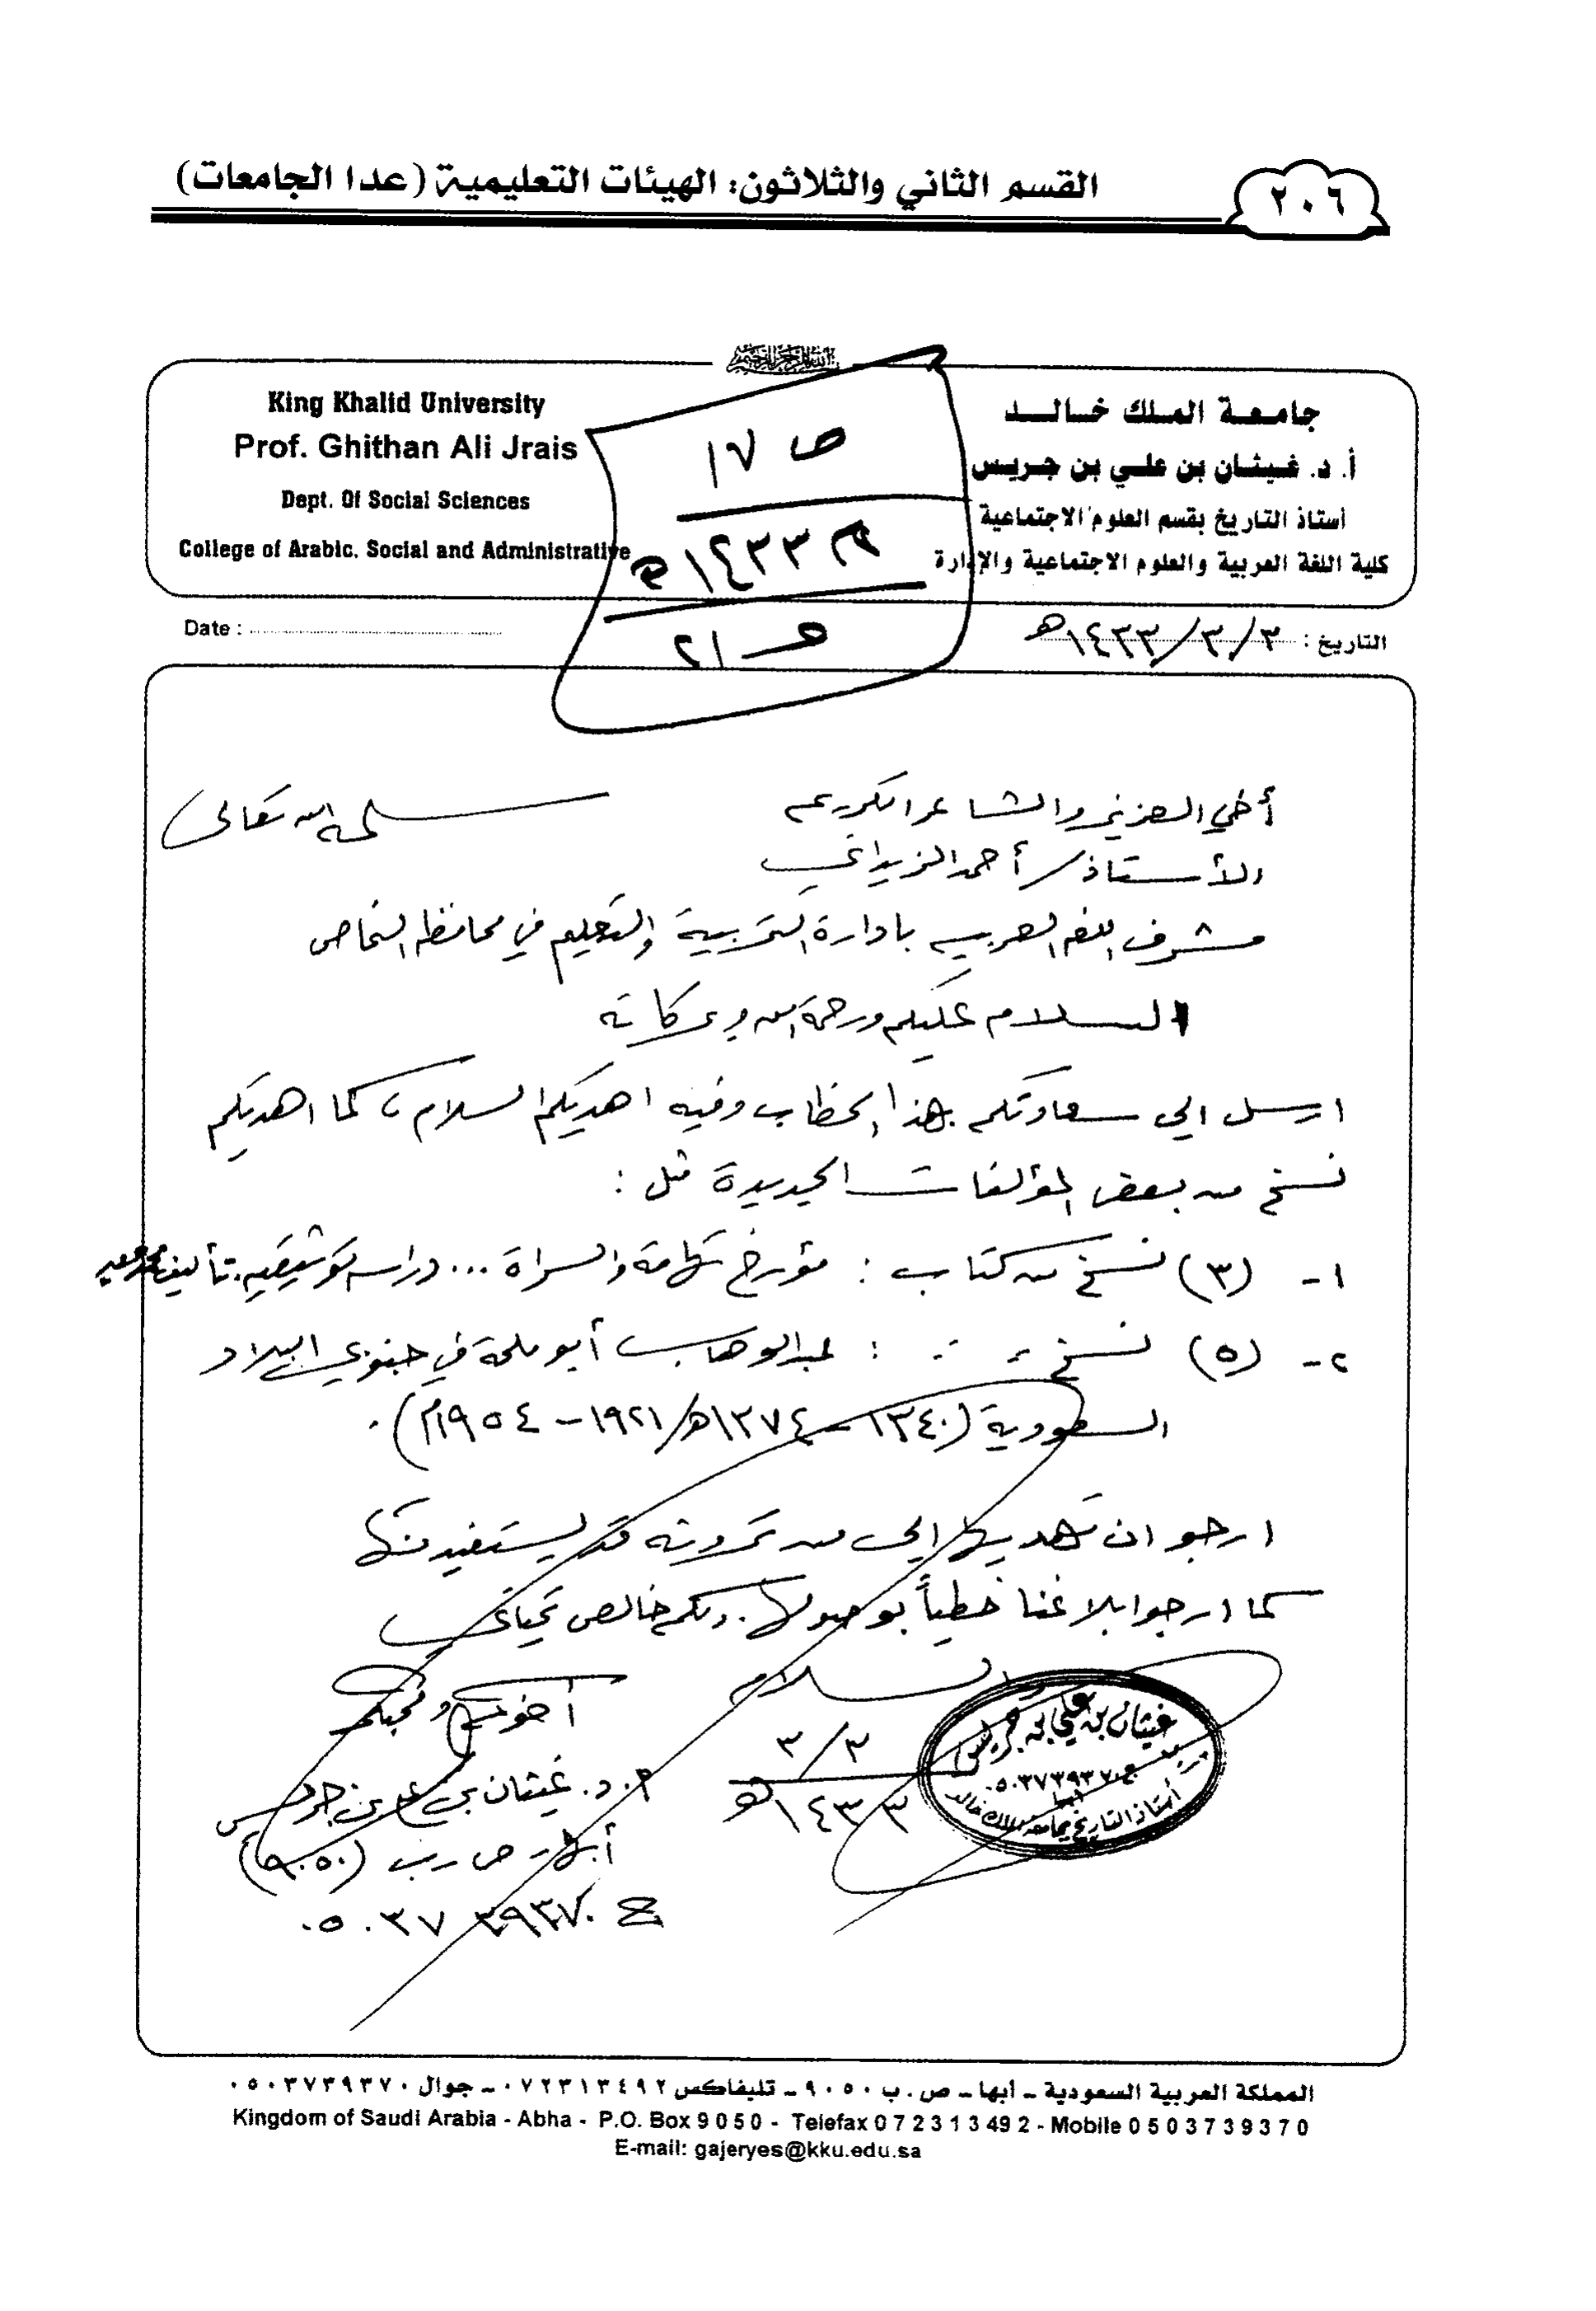 ٢٠٦
القسم الثاني والثلاثون: الهيئات التعليمية (عدا الجامعات)
جامعة الملك خالد
أ. د. غيثان بن علي بن جريس
أستاذ التاريخ بقسم العلوم الاجتماعية
كلية اللغة العربية والعلوم الاجتماعية والإدارة
King Khalid University
Prof. Ghithan Ali Jrais
Dept. Of Social Sciences
College of Arabic. Social and Administrative
ص ١٧
م ١٤٣٣ هـ
ص ٢١
التاريخ : ٣/٣/١٤٣٣هـ
Date :
أخي العزيز والشاعر الكريم
سلمه الله تعالى
الأستاذ/ أحمد الزيداني
مشرف اللغة العربية بادارة التربية والتعليم في محافظة النماص
السلام عليكم ورحمة الله وبركاته
ارسل الى سعادتكم هذا الخطاب وفيه اهديكم السلام، كما اهديكم
نسخ من بعض المؤلفات الجديدة مثل :
١- (٣) نسخ من كتاب : مؤرخ تهامة والسراة ... دراسة توثيقية. تأليف محمد
٢- (٥) نسخ = = : عبدالوهاب أبو ملحة في جنوبي البلاد
السعودية (١٣٤٠ - ١٣٧٤هـ/ ١٩٢١ - ١٩٥٤م).
ارجو ان تهديها إلى من ترونه قد يستفيد منها
كما ارجو ابلاغنا خطياً بوصولها. ولكم خالص تحياتي
والسلام
أخوكم ومحبكم
أ. د. غيثان بن علي بن جريس
أبها - ص . ب (٩٠٥٠)
ج ٠٥٠٣٧٣٩٣٧٠
٣/٣
١٤٣٣هـ
غيثان بن علي بن جريس
ج ٠٥٠٣٧٣٩٣٧٠
أبها
أستاذ التاريخ بجامعة الملك خالد
المملكة العربية السعودية - أبها - ص . ب ٩٠٥٠ - تليفاكس ٠٧٢٣١٣٤٩٢ - جوال ٠٥٠٣٧٣٩٣٧٠
Kingdom of Saudi Arabia - Abha - P.O. Box 9 0 5 0 - Telefax 0 7 2 3 1 3 49 2 - Mobile 0 5 0 3 7 3 9 3 7 0
E-mail: gajeryes@kku.edu.sa